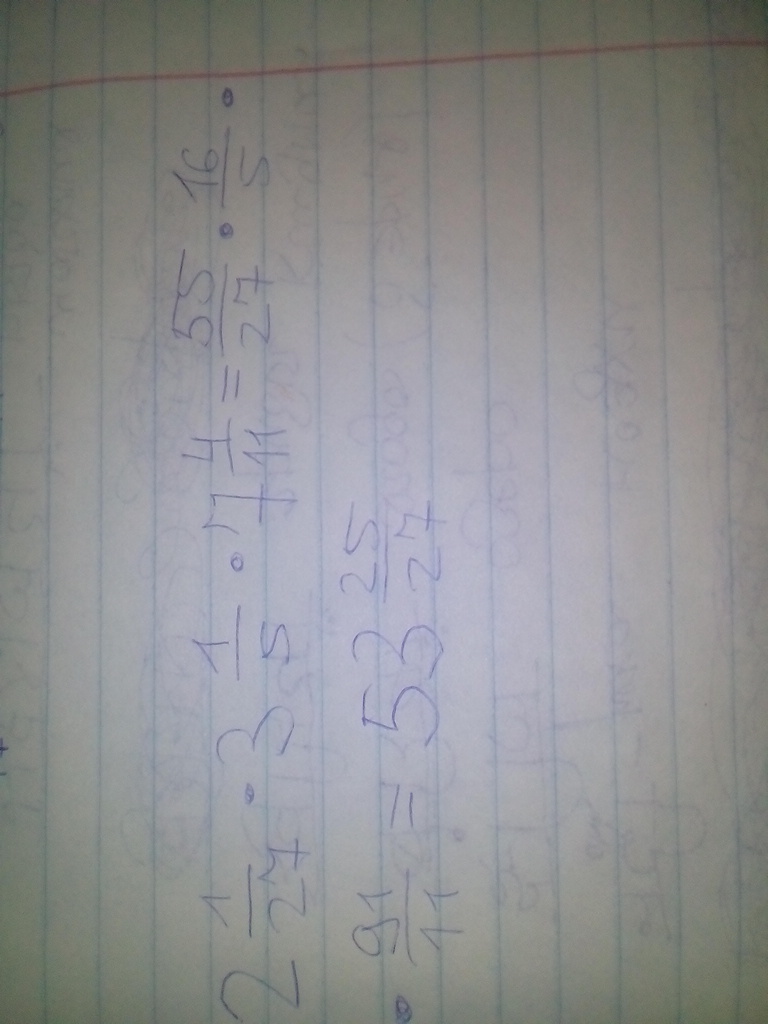 2 1/27 · 3 1/5 · 7 4/11 = 55/27 · 16/5 ·
· 91/11 = 53 25/27